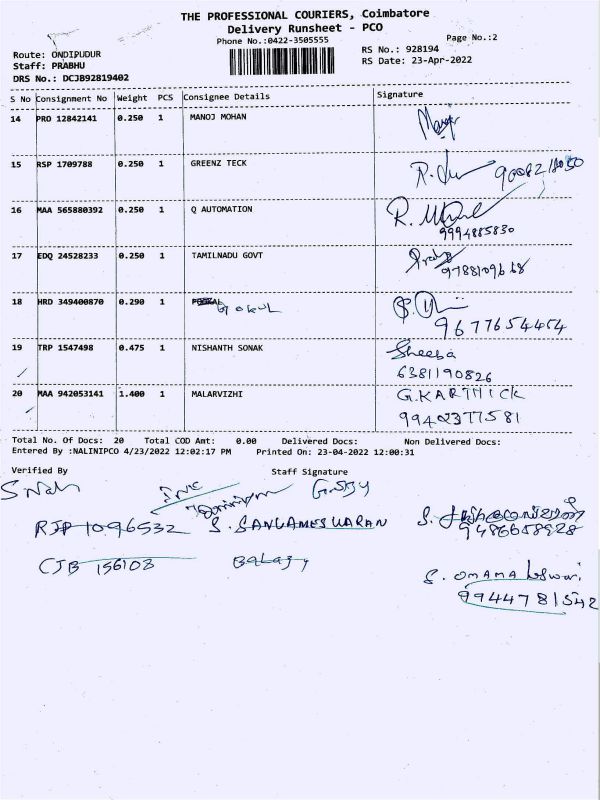 THE PROFESSIONAL COURIERS, Coimbatore
Delivery Runsheet - PCO
Phone No.:0422-3505555
Page No.:2
Route: ONDIPUDUR
RS No.: 928194
Staff: PRABHU
RS Date: 23-Apr-2022
DRS No.: DCJB92819402
S No Consignment No Weight PCS Consignee Details Signature
14 PRO 12842141 0.250 1 MANOJ MOHAN
15 RSP 1709788 0.250 1 GREENZ TECK
16 MAA 565880392 0.250 1 Q AUTOMATION
9994885830
17 EDQ 24528233 0.250 1 TAMILNADU GOVT
9788109668
18 HRD 349400870 0.290 1 Gokul
9677654454
19 TRP 1547498 0.475 1 NISHANTH SONAK Sheeba
6381190826
20 MAA 942053141 1.400 1 MALARVIZHI G.KARTHICK
99402377581
Total No. Of Docs: 20 Total COD Amt: 0.00 Delivered Docs: Non Delivered Docs:
Entered By :NALINIPCO 4/23/2022 12:02:17 PM Printed On: 23-04-2022 12:00:31
Verified By Staff Signature
RJP 1096532 S. SANGAMESWARAN
9486658928
CJB 156103 Balaji
S. OMAMAheswari
9944781542